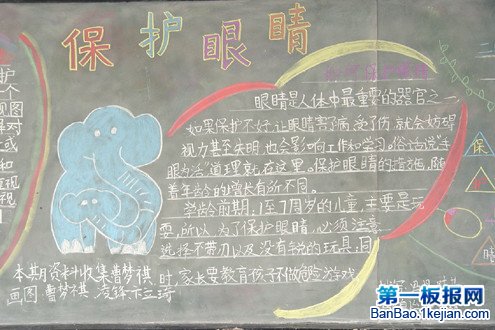 保护眼睛
眼睛是人体中最重要的器官之一
如果保护不好,让眼睛害了病,受了伤,就会妨碍
视力甚至失明,也会影响工作和学习。俗话说“手
眼为活”道理就在这里。保护眼睛的措施,随
着年龄的增长有所不同。
学龄前期,1至7周岁的儿童,主要是玩
耍,所以,为了保护眼睛,必须注意
选择不带刃以及没有尖锐的玩具,同
时,家长要教育孩子不做危险游戏
本期资料收集:曹梦祺
画图:曹梦祺
护
个
视图
保对
或
和
二
保
第一板报网
BanBao.1kejian.com